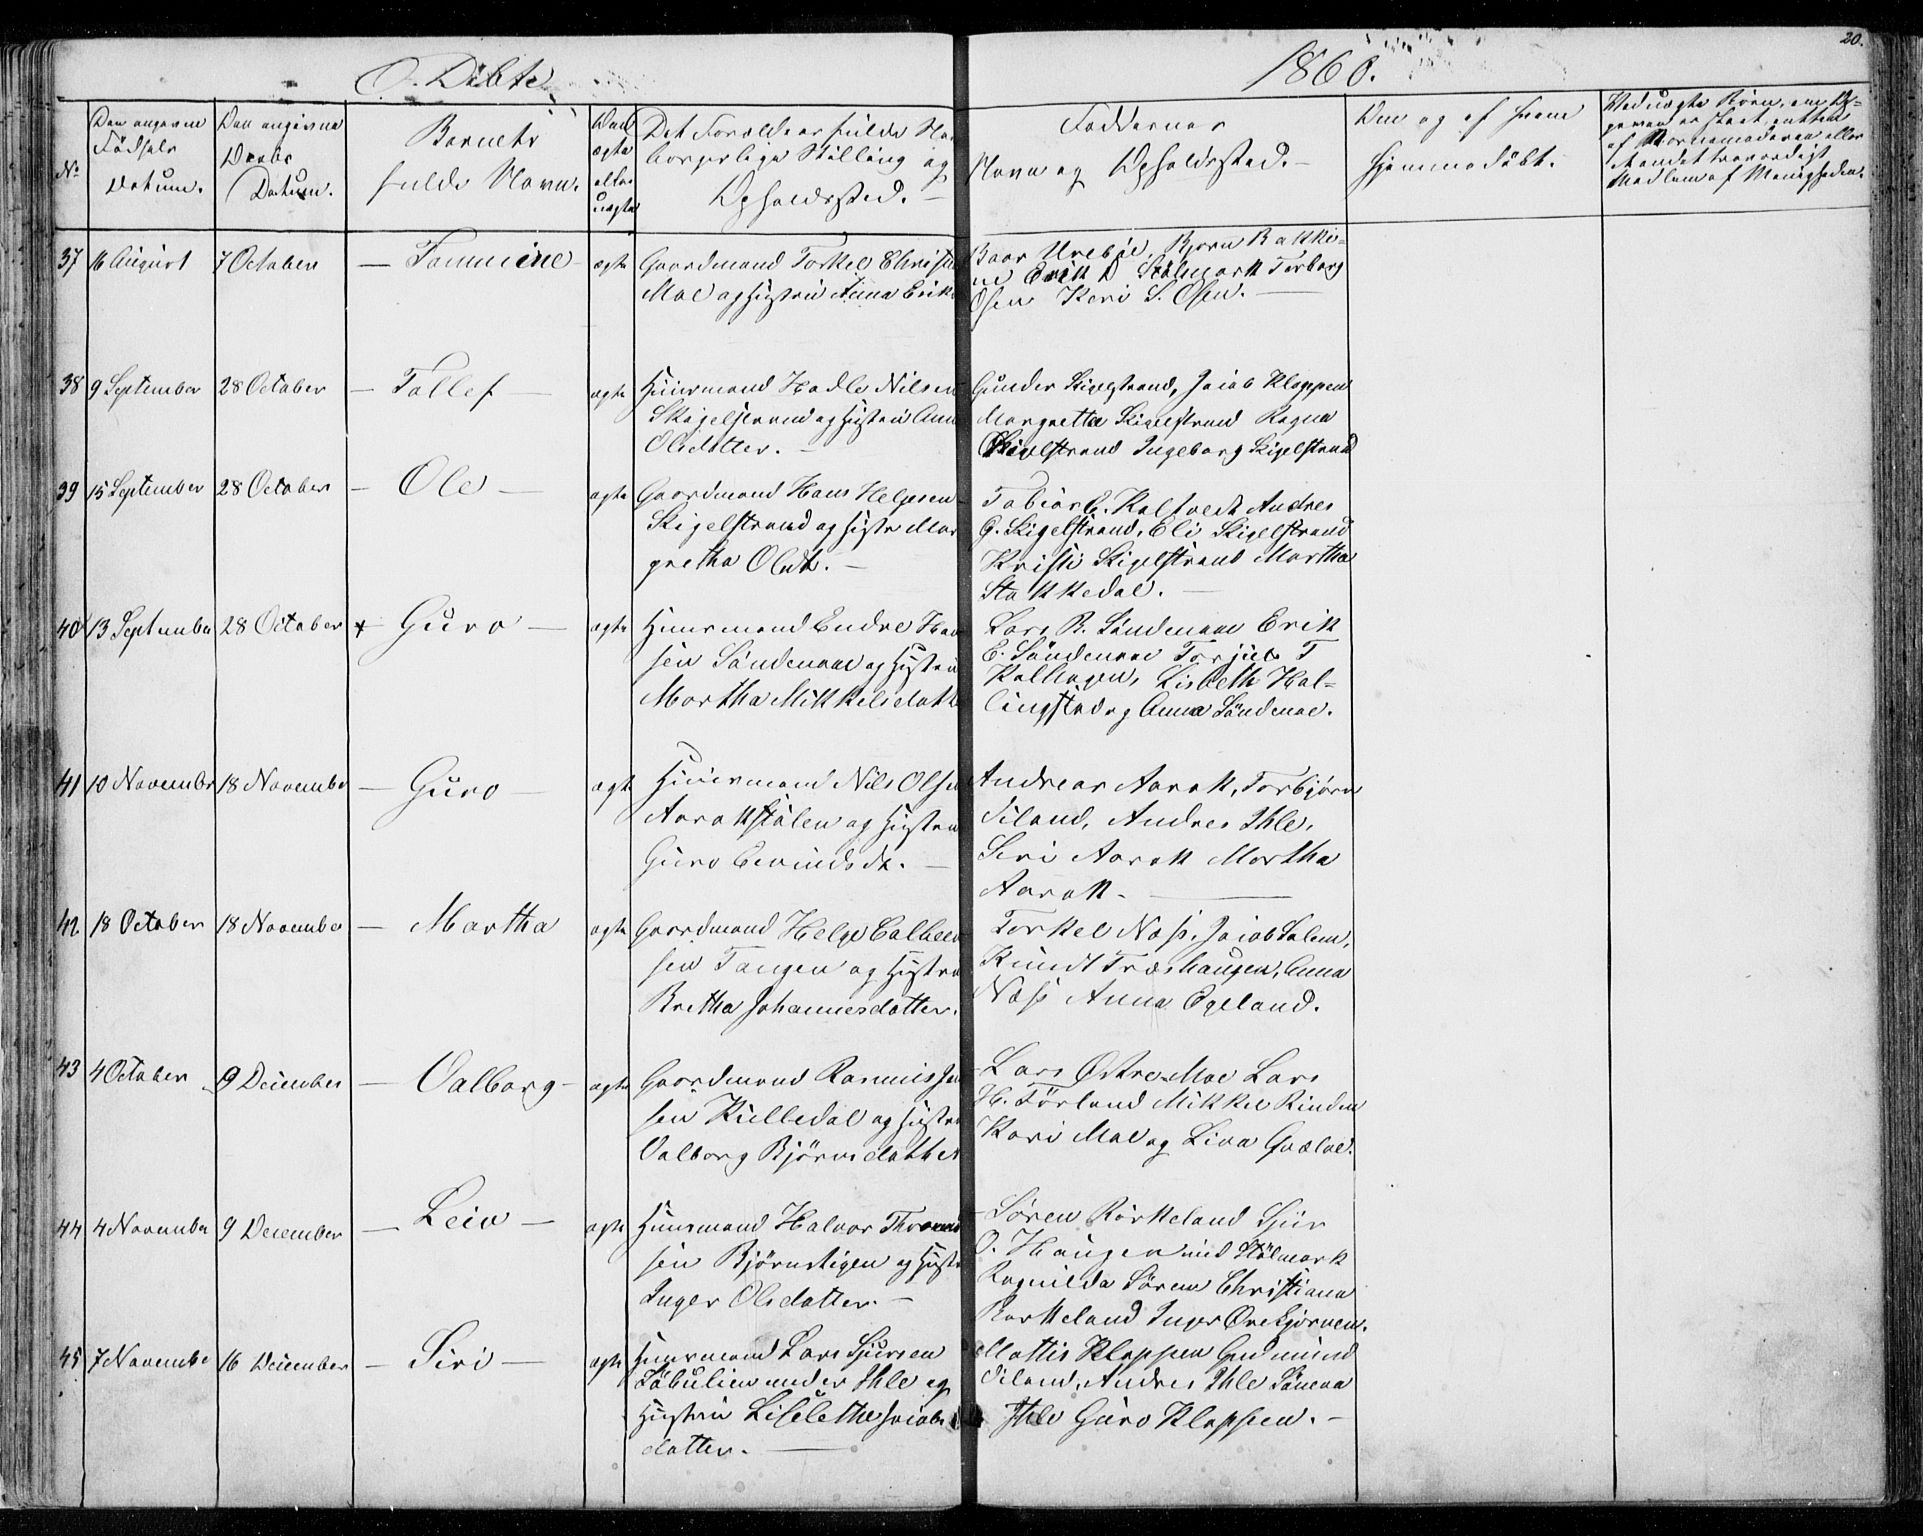 Døbte
1860.
20.
No
Den angivne
Fødsels
Datum.
Den angivne
Daabs
Datum.
Barnets
fulde Navn.
ægte
eller
uægte
Det Forældres fulde Na
borgerlige Stilling og
Opholdssted. —
Faddernes
Navn og Opholdssted. —
Om og af hvem
hjemmedøbt.
Ved uægte Børn, om
af Barnemoderen eller
Medlem af Menigheden.
37 16 August 7 October — Tommine — ægte Gaardmand Torkel Christ
Moe og Hustru Anna Erik
Baar Urebøe, Bjørn Bakke-
ne Erik D Stølmark Torborg
Osen Kari S. Osen. —
38 9 September 28 October — Tollef — ægte Huusmand Hadle Nilsen
Skigelstrand og Hustru Ann
Olsdatter. —
Gunder Skigelstrand, Jacob Kloppen
Margretta Skigelstrand Ragna
Skigelstrand Ingeborg Skigelstrand
39 15 September 28 October — Ole — ægte Gaardmand Hans Helgesen
Skigelstrand og Hustr Mar
gretha Olsdt. —
Tobias C. Kaltvedt Andres
G. Skigelstrand, Eli Skigelstrand
Kristi Skigelstrand Martha
Stakkedal. —
40 13 September 28 October + Guro — ægte Huusmand Endre Han
sen Søndenaae og Hustru
Martha Mikkelsdatt
Lars R. Søndenaae Erik
E. Søndenaae Torjus T
Kalhagen, Lisbeth Hal-
lingstad og Anna Søndenae.
41 10 November 18 November — Guro — ægt Huusmand Nils Olsen
Aarakstølen og Hustru
Guro Eevindsdt. —
Andreas Aarak, Torbjørn
Eiland, Andres Ihle,
Seri Aarak Martha
Aarak. —
42 18 October 18 November — Martha ægte Gaardmand Helge Calleen
sen Tangen og Hustru
Bretha Johannesdatter.
Torkel Næss, Jacob Salem,
Knudt Træshaugen, Anna
Næss Anna Egeland.
43 4 October 9 December — Valborg — ægte Gaardmand Rasmus Ja
sen Killedal og Hustru
Valborg Bjørnsdatter
Lars Østre Moe Lars
H. Førland Mikkel Rinden
Kari Moe og Liva Qvaloe.
44 4 November 9 December — Leiv — ægte Huusmand Halvor Thorm
sen Bjørnstigen og Hustr
Inger Olsdatter. —
Søren Rørkeland Sjur
O. Haugen Stølmark
Ragnilda Søren Christiana
Rørkeland Inger Øvregjørven.
45 7 Novembe 16 December — Siri — ægte Huusmand Lars Sjursen
Løbulien under Ihle og
Hustru Liselethe Jacobs
datter. —
Mattis Kloppen Gudmund
Eiland, Andres Ihle Søneva
Ihle Guro Kloppen. —